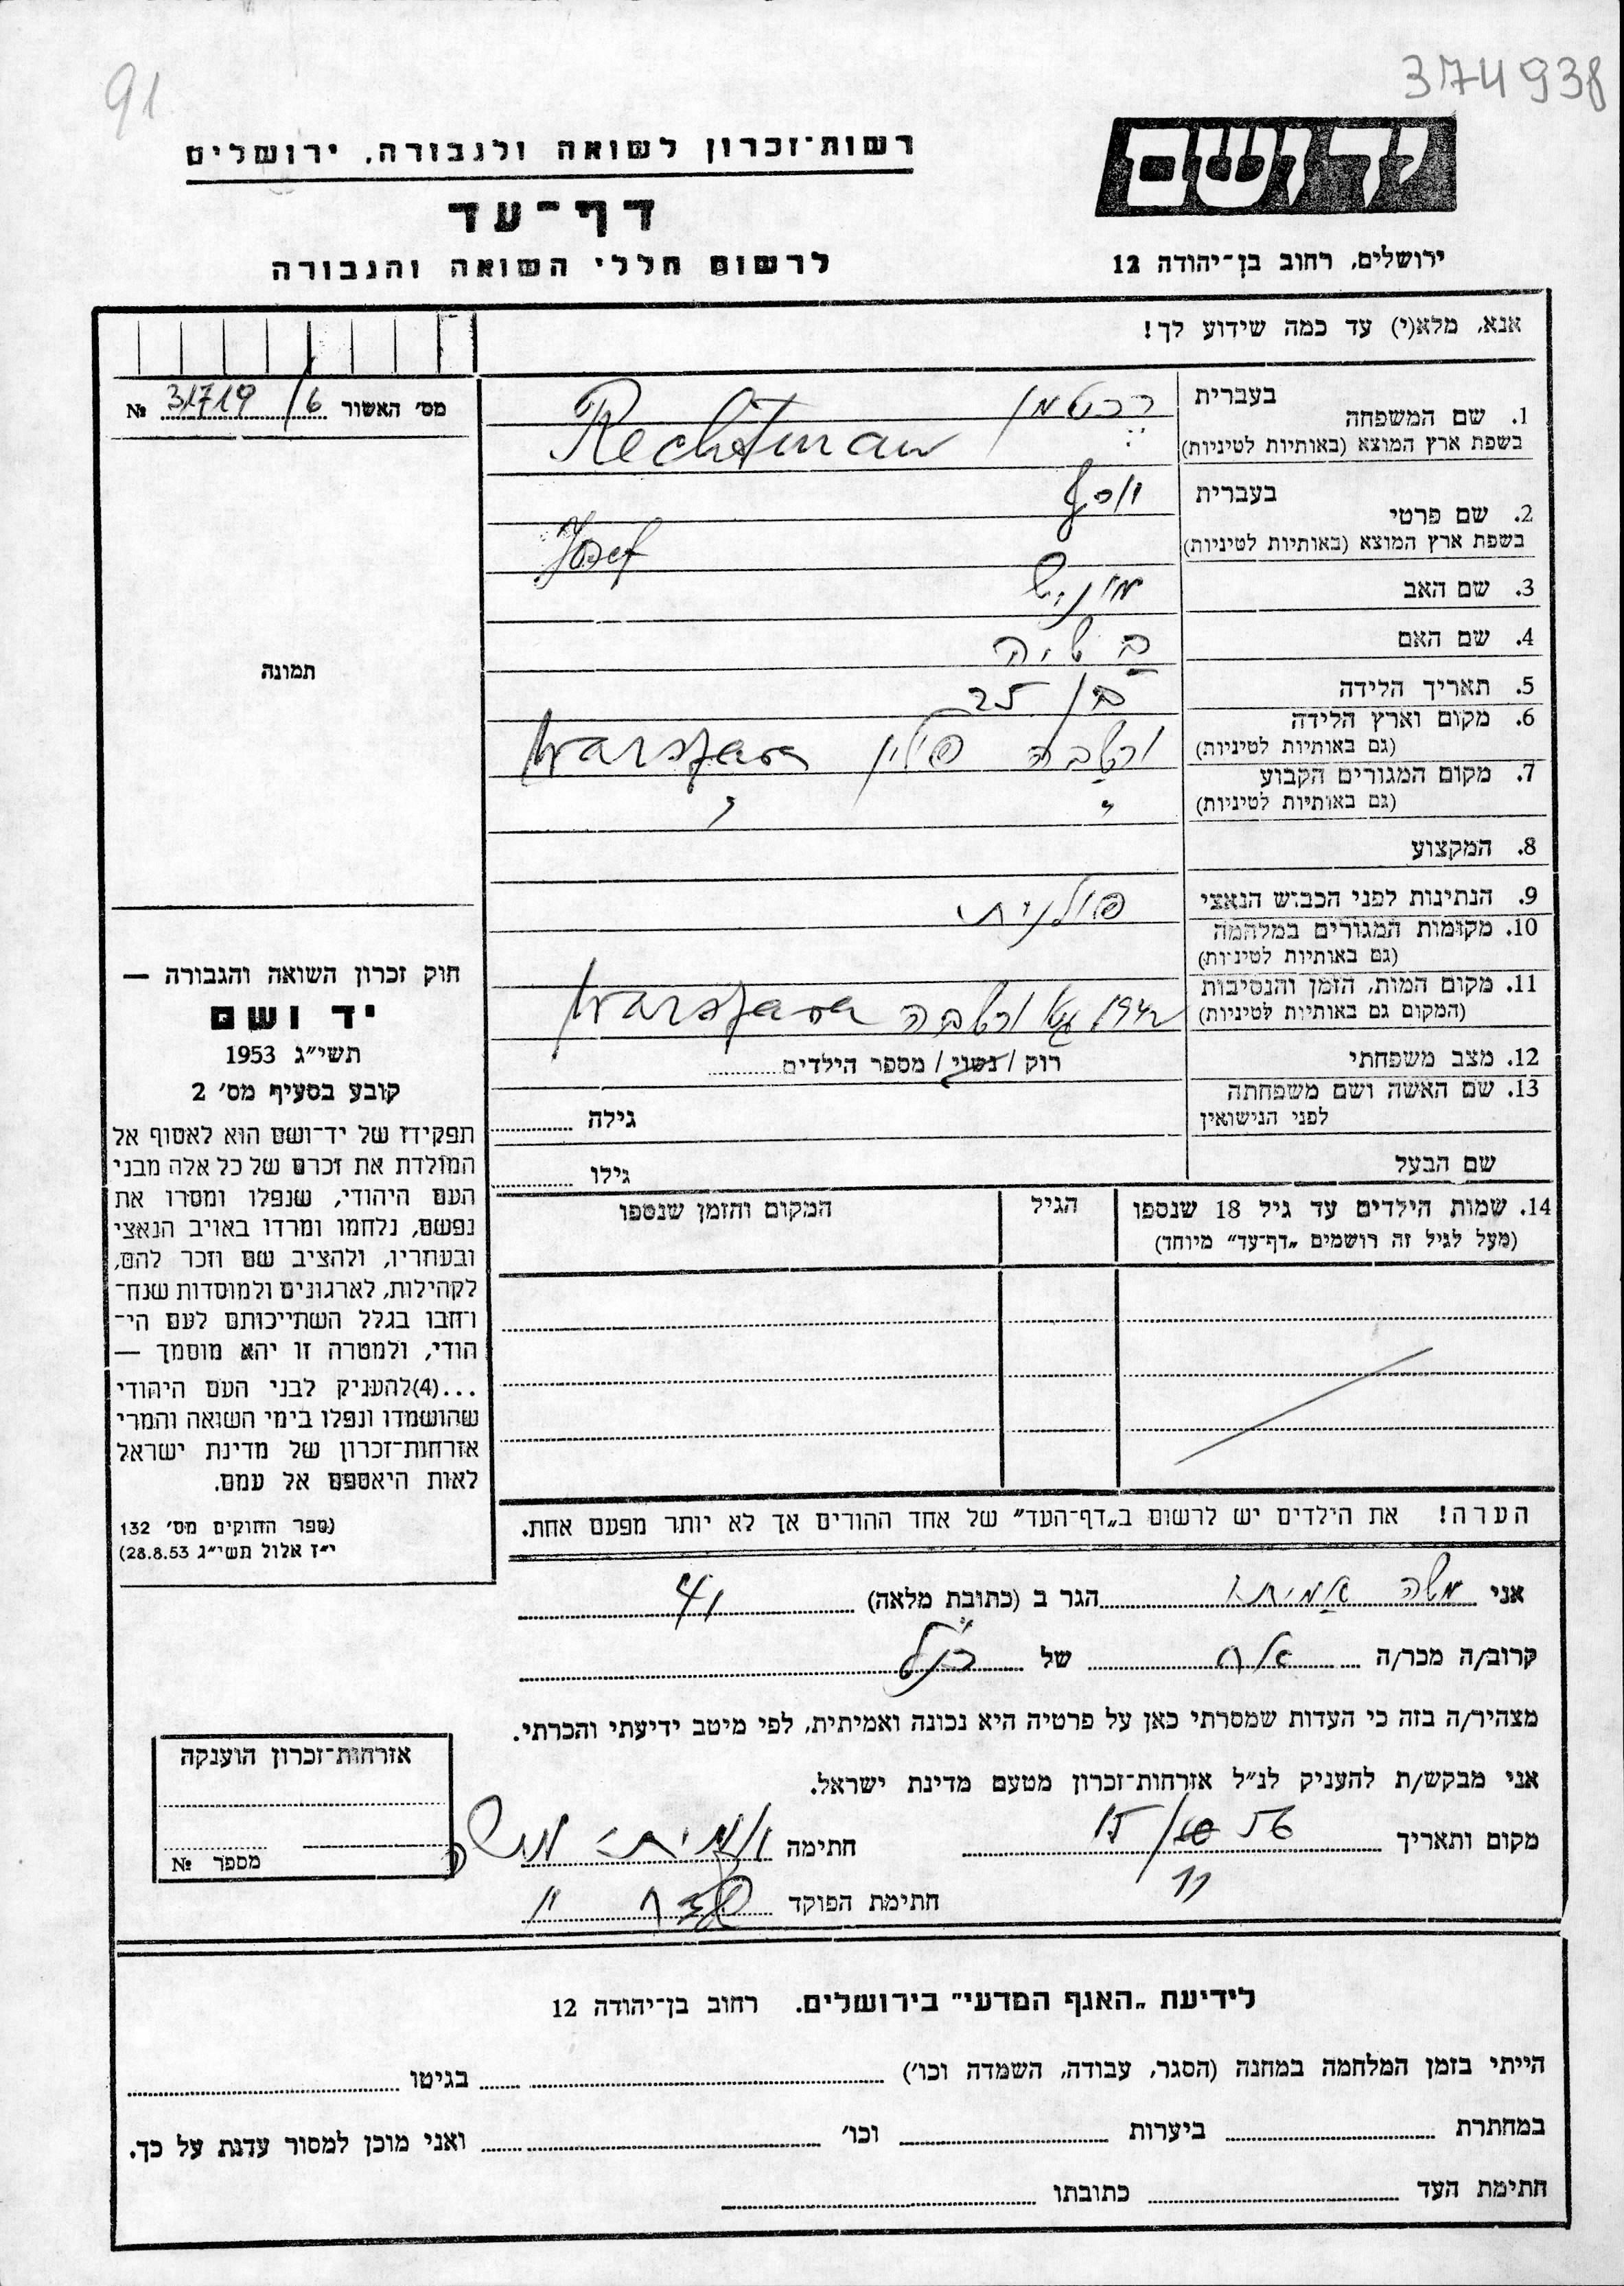 91
374938
יד ושם
רשות־זכרון לשואה ולגבורה, ירושלים
דף־עד
לרשום חללי השואה והגבורה
ירושלים, רחוב בן־יהודה 12
אנא, מלא(י) עד כמה שידוע לך!
מס׳ האשור 31719/6 №
1. שם המשפחה
בעברית רכטמן
בשפת ארץ המוצא (באותיות לטיניות) Rechtman
2. שם פרטי
בעברית יוסף
בשפת ארץ המוצא (באותיות לטיניות) Josef
3. שם האב מוניש
4. שם האם בטיה
5. תאריך הלידה בן 25
6. מקום וארץ הלידה
(גם באותיות לטיניות) ורשבה פולין Warszawa
7. מקום המגורים הקבוע
(גם באותיות לטיניות) " "
8. המקצוע
9. הנתינות לפני הכבוש הנאצי פולנית
10. מקומות המגורים במלחמה
(גם באותיות לטיניות)
11. מקום המות, הזמן והנסיבות
(המקום גם באותיות לטיניות) 1942 ורשבה Warszawa
12. מצב משפחתי רוק / נשוי / מספר הילדים
13. שם האשה ושם משפחתה
לפני הנישואין גילה
שם הבעל גילו
14. שמות הילדים עד גיל 18 שנספו
(מעל לגיל זה רושמים „דף־עד" מיוחד)
הגיל
המקום והזמן שנספו
הערה! את הילדים יש לרשום ב„דף־העד" של אחד ההורים אך לא יותר מפעם אחת.
תמונה
חוק זכרון השואה והגבורה —
יד ושם
תשי״ג 1953
קובע בסעיף מס׳ 2
תפקידו של יד־ושם הוא לאסוף אל
המולדת את זכרם של כל אלה מבני
העם היהודי, שנפלו ומסרו את
נפשם, נלחמו ומרדו באויב הנאצי
ובעוזריו, ולהציב שם וזכר להם,
לקהילות, לארגונים ולמוסדות שנח־
רחבו בגלל השתייכותם לעם הי־
הודי, ולמטרה זו יהא מוסמך —
...(4) להעניק לבני העם היהודי
שהושמדו ונפלו בימי השואה והמרי
אזרחות־זכרון של מדינת ישראל
לאות היאספם אל עמם.
(ספר החוקים מס׳ 132
י״ז אלול תשי״ג 28.8.53)
אני משה אמיתי הגר ב (כתובת מלאה)
קרוב/ה מכר/ה אח של הנ״ל
מצהיר/ה בזה כי העדות שמסרתי כאן על פרטיה היא נכונה ואמיתית, לפי מיטב ידיעתי והכרתי.
אני מבקש/ת להעניק לנ״ל אזרחות־זכרון מטעם מדינת ישראל.
מקום ותאריך 15/11 56
חתימה אמיתי משה
חתימת הפוקד
אזרחות־זכרון הוענקה
מספר №
לידיעת „האגף המדעי" בירושלים. רחוב בן־יהודה 12
הייתי בזמן המלחמה במחנה (הסגר, עבודה, השמדה וכו׳) בגיטו
במחתרת ביערות וכו׳ ואני מוכן למסור עדות על כך.
חתימת העד כתובתו